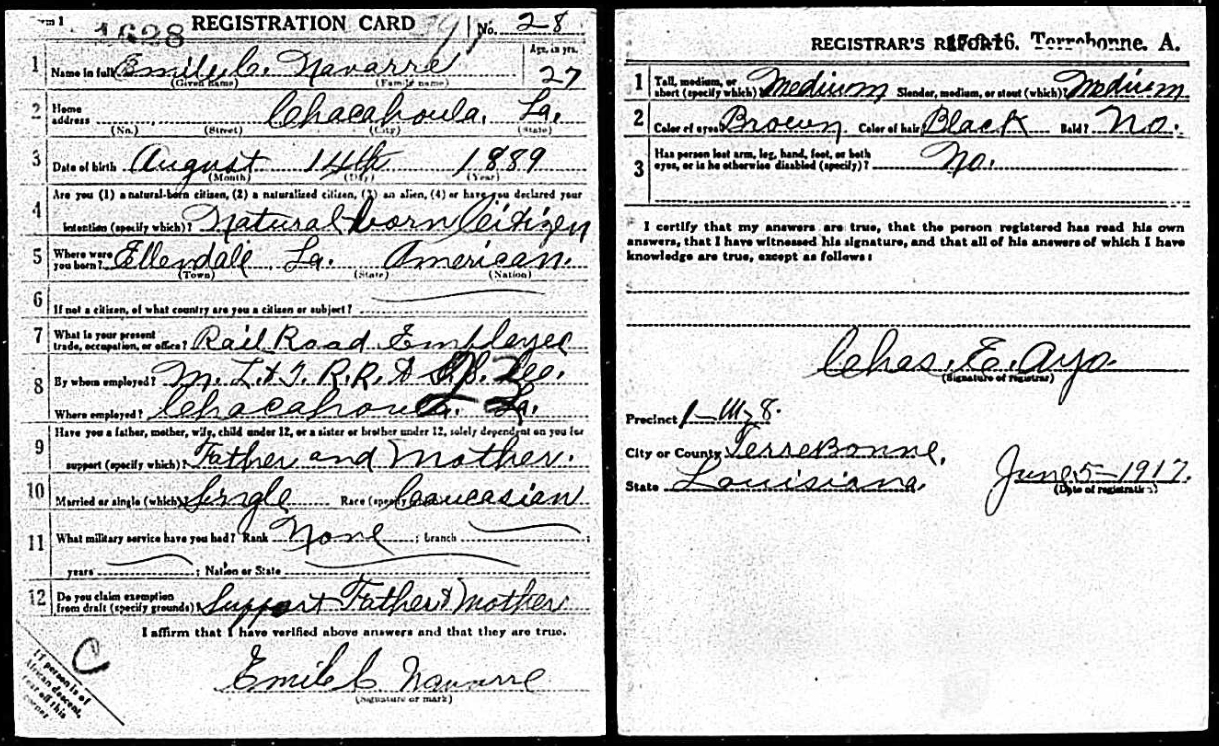 Form 1 1628 REGISTRATION CARD No. 28
1 Name in full Emile C. Navarre Age, in yrs. 27
(Given name) (Family name)
2 Home address Chacahoula, La.
(No.) (Street) (City) (State)
3 Date of birth August 14th 1889
(Month) (Day) (Year)
4 Are you (1) a natural-born citizen, (2) a naturalized citizen, (3) an alien, (4) or have you declared your
intention (specify which)? Natural born Citizen
5 Where were you born? Ellendale La. American.
(Town) (State) (Nation)
6 If not a citizen, of what country are you a citizen or subject?
7 What is your present trade, occupation, or office? Rail Road Employee
8 By whom employed? M. L. & T. R. R. & S. S. Co.
Where employed? Chacahoula, La.
22
9 Have you a father, mother, wife, child under 12, or a sister or brother under 12, solely dependent on you for
support (specify which)? Father and Mother.
10 Married or single (which)? Single Race (specify which)? Caucasian
11 What military service have you had? Rank None ; branch ;
years ; Nation or State
12 Do you claim exemption from draft (specify grounds)? Support Father & Mother
I affirm that I have verified above answers and that they are true.
C
Emile C Navarre
(Signature or mark)
If person is of
African descent,
tear off this
corner
REGISTRAR'S REPORT 17-3-16. Terrebonne. A.
1 Tall, medium, or short (specify which)? Medium Slender, medium, or stout (which)? Medium
2 Color of eyes Brown Color of hair Black Bald? No.
3 Has person lost arm, leg, hand, foot, or both
eyes, or is he otherwise disabled (specify)? No.
I certify that my answers are true, that the person registered has read his own
answers, that I have witnessed his signature, and that all of his answers of which I have
knowledge are true, except as follows:
Chas. E. Ayo.
(Signature of registrar)
Precinct 1-W-8.
City or County TerreBonne.
State Louisiana. June 5-1917.
(Date of registration)